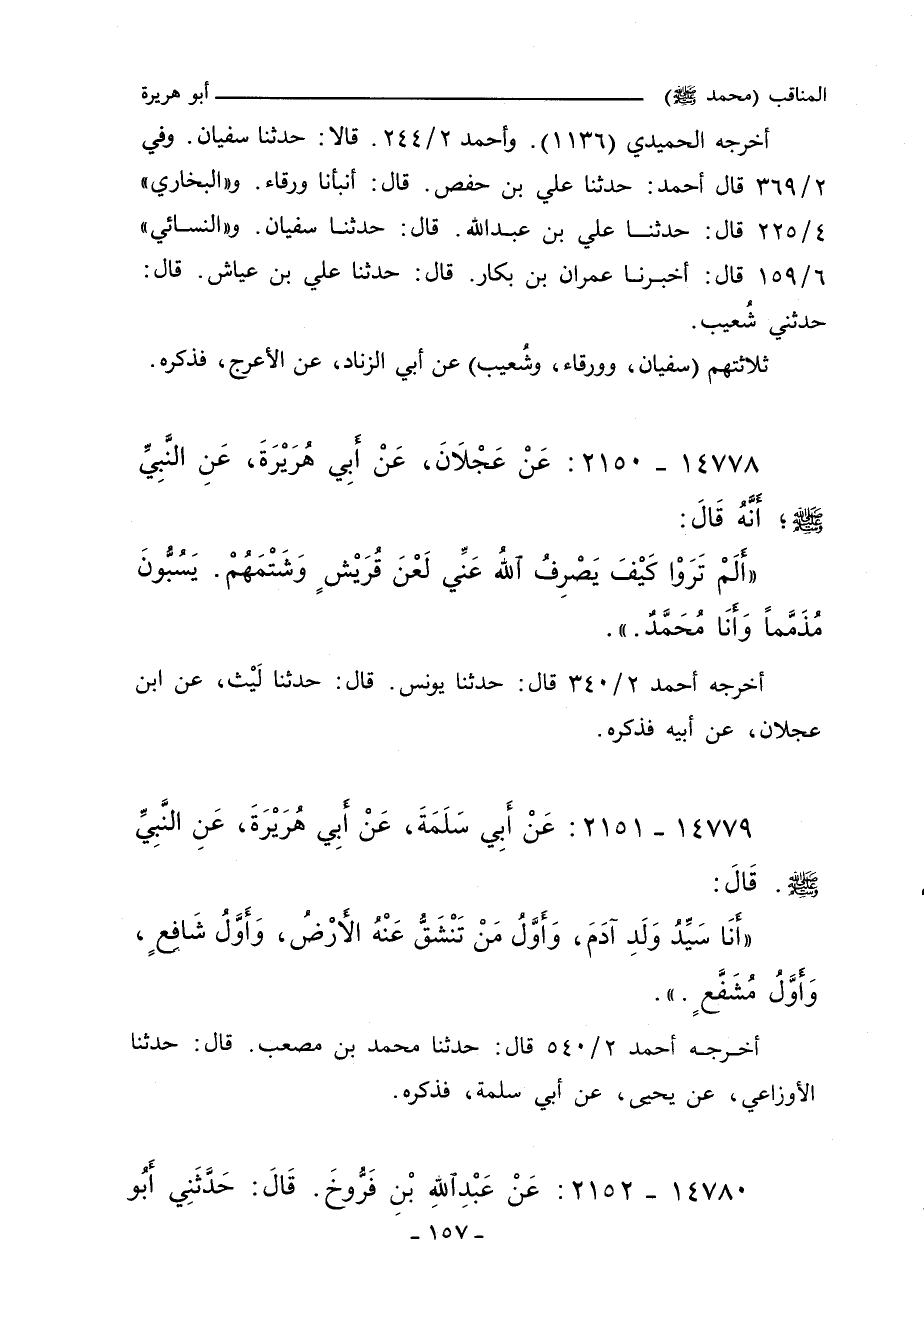 المناقب (محمد ﷺ) ــــــــــ أبو هريرة
أخرجه الحميدي (١١٣٦). وأحمد ٢/ ٢٤٤. قالا: حدثنا سفيان. وفي
٢/ ٣٦٩ قال أحمد: حدثنا علي بن حفص. قال: أنبأنا ورقاء. و«البخاري»
٤/ ٢٢٥ قال: حدثنا علي بن عبدالله. قال: حدثنا سفيان. و«النسائي»
٦/ ١٥٩ قال: أخبرنا عمران بن بكار. قال: حدثنا علي بن عياش. قال:
حدثني شُعيب.
ثلاثتهم (سفيان، وورقاء، وشُعيب) عن أبي الزناد، عن الأعرج، فذكره.
١٤٧٧٨ - ٢١٥٠: عَنْ عَجْلَانَ، عَنْ أَبِي هُرَيْرَةَ، عَنِ النَّبِيِّ
ﷺ؛ أَنَّهُ قَالَ:
«أَلَمْ تَرَوْا كَيْفَ يَصْرِفُ ٱللهُ عَنِّي لَعْنَ قُرَيْشٍ وَشَتْمَهُمْ. يَسُبُّونَ
مُذَمَّماً وَأَنَا مُحَمَّدٌ.».
أخرجه أحمد ٢/ ٣٤٠ قال: حدثنا يونس. قال: حدثنا لَيْث، عن ابن
عجلان، عن أبيه فذكره.
١٤٧٧٩ - ٢١٥١: عَنْ أَبِي سَلَمَةَ، عَنْ أَبِي هُرَيْرَةَ، عَنِ النَّبِيِّ
ﷺ. قَالَ:
«أَنَا سَيِّدُ وَلَدِ آدَمَ، وَأَوَّلُ مَنْ تَنْشَقُّ عَنْهُ الأَرْضُ، وَأَوَّلُ شَافِعٍ،
وَأَوَّلُ مُشَفَّعٍ.».
أخرجه أحمد ٢/ ٥٤٠ قال: حدثنا محمد بن مصعب. قال: حدثنا
الأوزاعي، عن يحيى، عن أبي سلمة، فذكره.
١٤٧٨٠ - ٢١٥٢: عَنْ عَبْدِٱللهِ بْنِ فَرُّوخَ. قَالَ: حَدَّثَنِي أَبُو
- ١٥٧ -